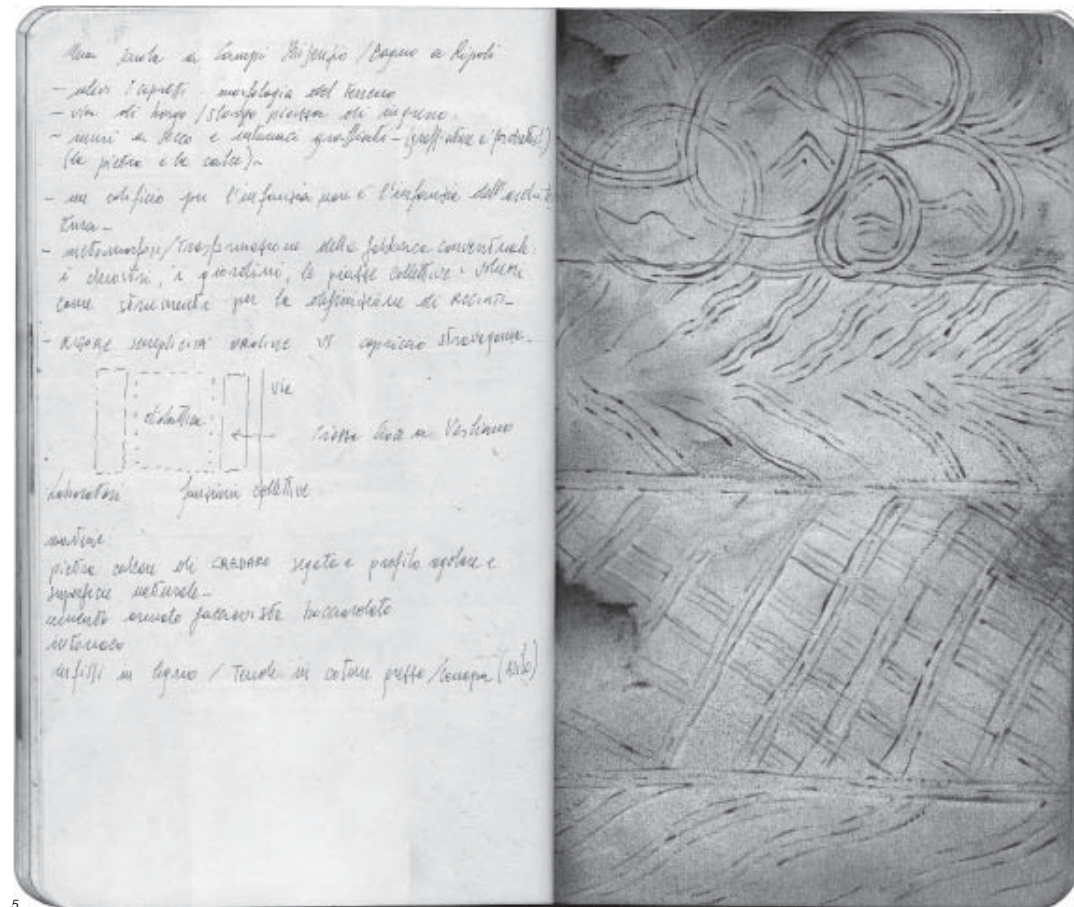 Una scuola a Campi Bisenzio / Bagno a Ripoli
- ulivi / cipressi - morfologia del terreno
- via di borgo / slargo piazza di ingresso.
- muri a secco e intonaci graffiati - (graffiature e
(la pietra e la calce) -
- un edificio per l'infanzia non è l'infanzia dell'archit
tura -
- metamorfosi / trasformazione della conventuale:
i chiostri, i giardini, le piazze collettive
come strumento per la definizione di
- RIGORE semplicità ORDINE VS capriccio stravaganza -
didattica
via
piazza
laboratori
funzioni collettive
materiali
pietra calcare di CREDARO segata e profilo regolare e
superficie naturale -
cemento armato facciavista bocciardato
intonaco
infissi in legno / Tende in cotone grezzo / canapa
5